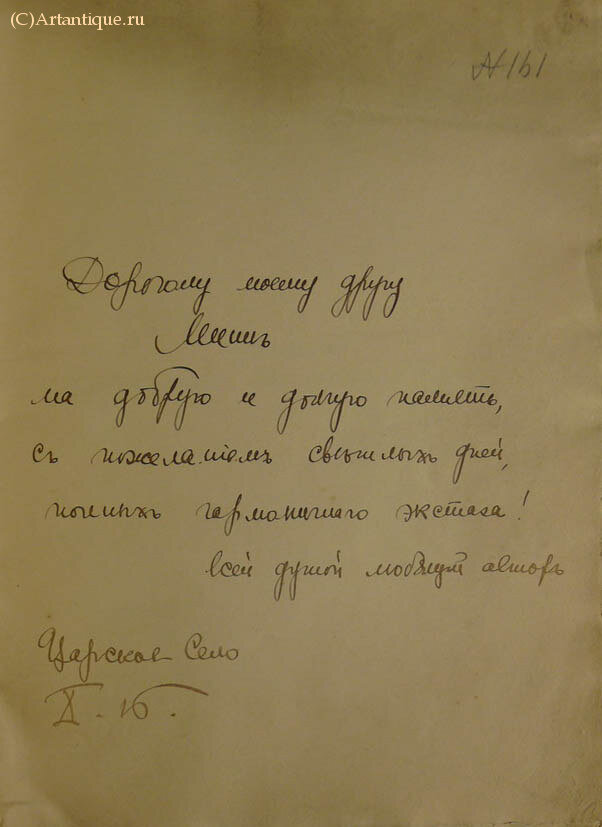 (C)Artantique.ru
N 161
Дорогому моему другу
Мишѣ
на добрую и долгую память,
съ пожеланіемъ свѣтлыхъ дней,
полныхъ гармоничнаго экстаза!
всей душой любящій авторъ
Царское Село
X. 16.